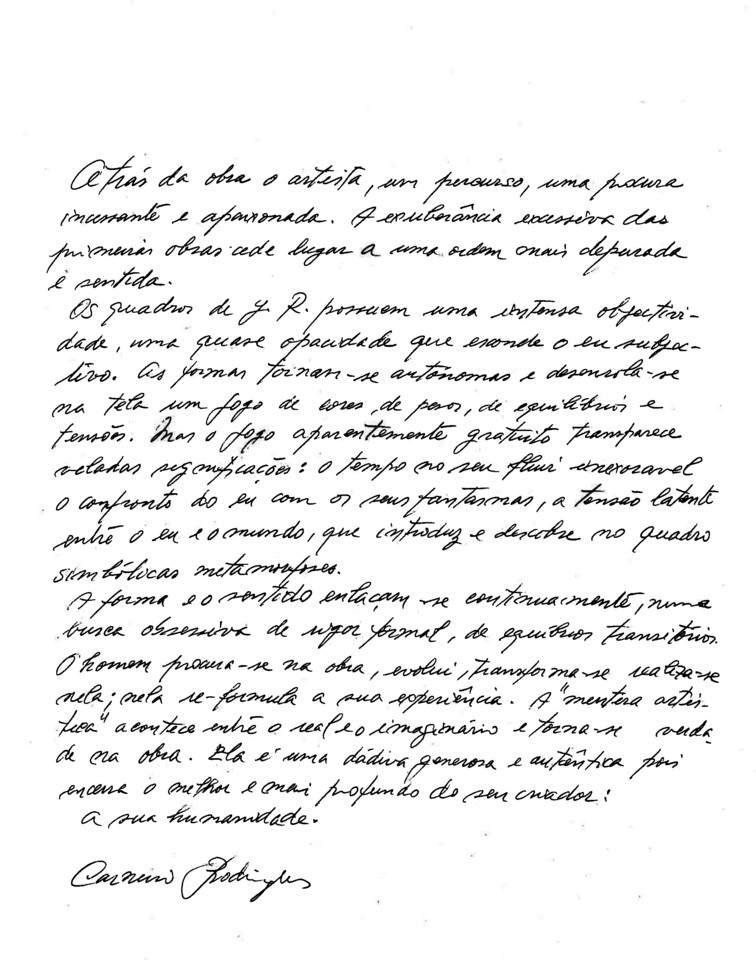 Atrás da obra o artista, um percurso, uma procura
incessante e apaixonada. A exuberância excessiva das
primeiras obras cede lugar a uma ordem mais depurada
e sentida.
Os quadros de J. R. possuem uma intensa objectivi-
dade, uma quase opacidade que esconde o eu subjec-
tivo. As formas tornam-se autónomas e desenrola-se
na tela um jogo de cores, de pesos, de equilíbrios e
tensões. Mas o jogo aparentemente gratuito transparece
veladas significações: o tempo no seu fluir inexoravel
o confronto do eu com os seus fantasmas, a tensão latente
entre o eu e o mundo, que introduz e descobre no quadro
simbólicas metamorfoses.
A forma e o sentido enlaçam-se continuamente, numa
busca obsessiva de rigor formal, de equilibrios transitórios.
O homem procura-se na obra, evolui, transforma-se realiza-se
nela; nela re-formula a sua experiência. A "mentira artís-
tica" acontece entre o real e o imaginário e torna-se verda-
de na obra. Ela é uma dádiva generosa e autêntica pois
encerra o melhor e mais profundo do seu criador:
a sua humanidade.
Carneiro Rodrigues